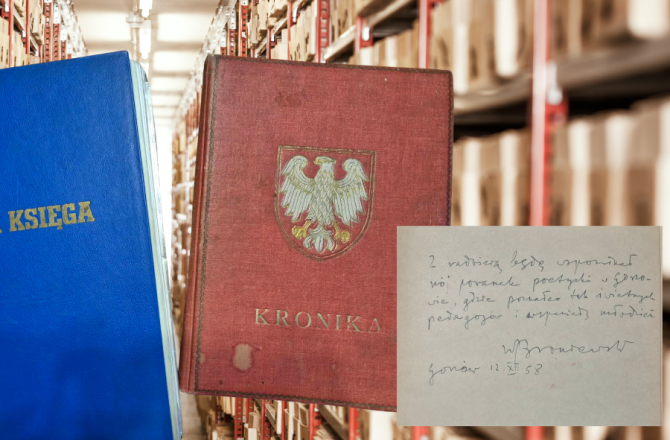 KSIĘGA
KRONIKA
Z radością będę wspominał
mój poranek poetycki w Gorzo-
wie, gdzie poznałem tak świetnych
pedagogów i wspaniałą młodzież
WBroniewski
Gorzów 12 XII 58